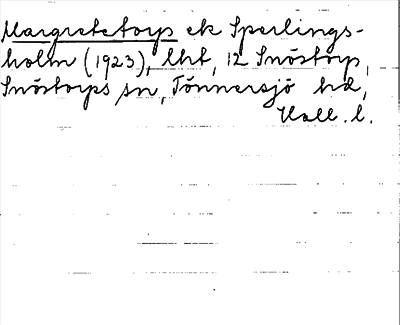 Margretetorps ek Sperlings-
holm (1923), lht, 12 Snöstorp,
Snöstorps sn, Tönnersjö hd,
Hall. l.